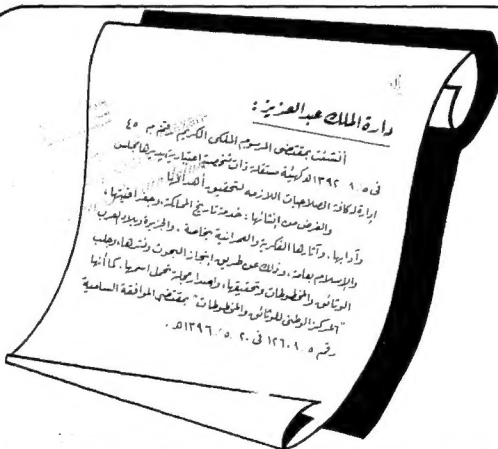 دارة الملك عبد العزيز :
أنشئت بمقتضى المرسوم الملكى الكريم رقم م ٤٥
فى ٥ . ٨ . ١٣٩٢ هـ كهيئة مستقلة ذات شخصية إعتبارية يديرها مجلس
إدارة له كافة الصلاحيات اللازمة لتحقيق أهدافها
والغرض من إنشائها : خدمة تاريخ المملكة ، وجغرافيتها ،
وآدابها ، وآثارها الفكرية والعمرانية بخاصة ، والجزيرة وبلاد العرب
والإسلام بعامة ، وذلك عن طريق إنجاز البحوث ونشرها ، وجلب
الوثائق والمخطوطات وتحقيقها ، وإصدار مجلة تحمل اسمها . كما أنها
"المركز الوطنى للوثائق والمخطوطات" بمقتضى الموافقة السامية
رقم ٥ . ٨ . ١٢٦ فى ٢٠ . ٥ . ١٣٩٦ هـ .